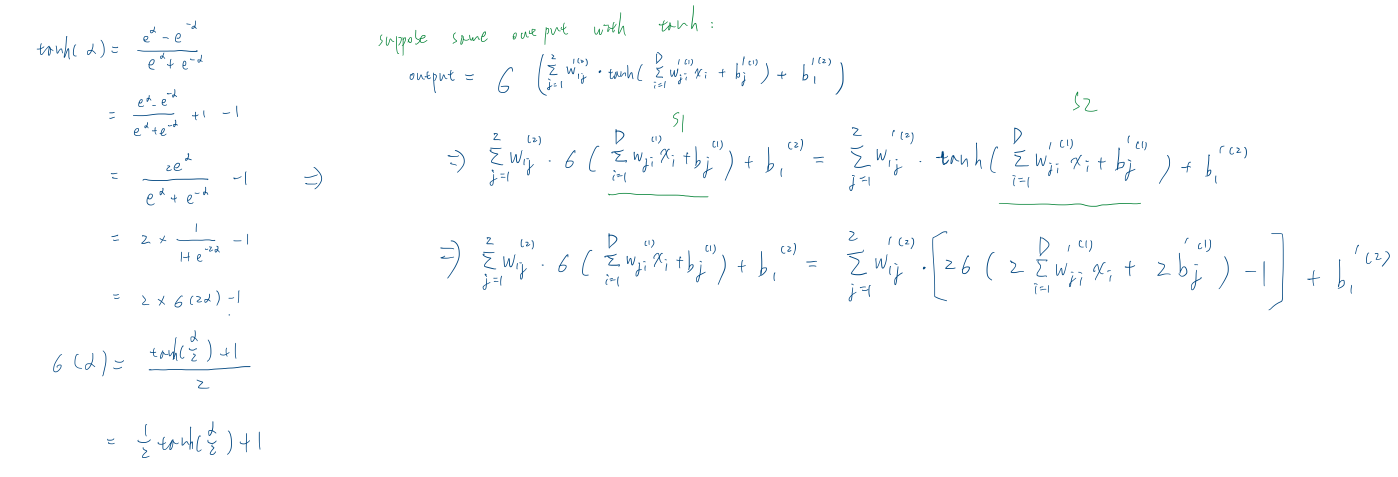 tanh(α) = (e^α - e^-α) / (e^α + e^-α)
= (e^α - e^-α) / (e^α + e^-α) + 1 - 1
= 2e^α / (e^α + e^-α) - 1 ⇒
= 2 × 1 / (1 + e^-2α) - 1
= 2 × σ(2α) - 1
σ(α) = (tanh(α/2) + 1) / 2
= 1/2 tanh(α/2) + 1
suppose same output with tanh :
output = σ ( ∑_{j=1}^{2} w'_{1j}^{(2)} · tanh( ∑_{i=1}^{D} w'_{ji}^{(1)} x_i + b'_j^{(1)} ) + b'_1^{(2)} )
S1 S2
⇒ ∑_{j=1}^{2} w_{1j}^{(2)} · σ ( ∑_{i=1}^{D} w_{ji}^{(1)} x_i + b_j^{(1)} ) + b_1^{(2)} = ∑_{j=1}^{2} w'_{1j}^{(2)} · tanh( ∑_{i=1}^{D} w'_{ji}^{(1)} x_i + b'_j^{(1)} ) + b'_1^{(2)}
⇒ ∑_{j=1}^{2} w_{1j}^{(2)} · σ ( ∑_{i=1}^{D} w_{ji}^{(1)} x_i + b_j^{(1)} ) + b_1^{(2)} = ∑_{j=1}^{2} w'_{1j}^{(2)} · [ 2σ ( 2 ∑_{i=1}^{D} w'_{ji}^{(1)} x_i + 2 b'_j^{(1)} ) - 1 ] + b'_1^{(2)}